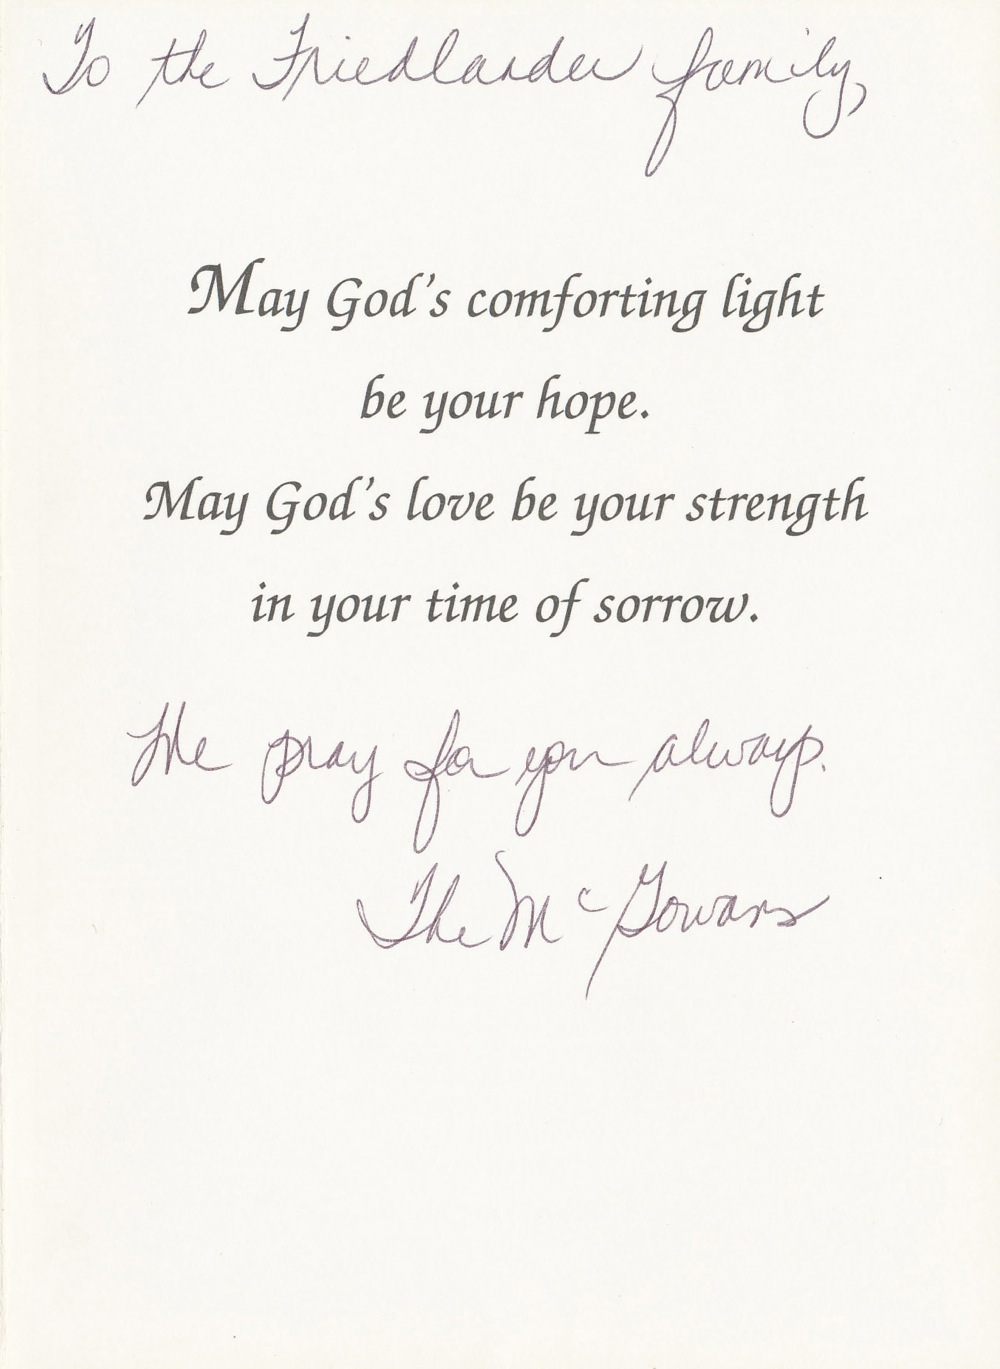 To the Friedlander family,
May God's comforting light
be your hope.
May God's love be your strength
in your time of sorrow.
We pray for you always.
The McGowans